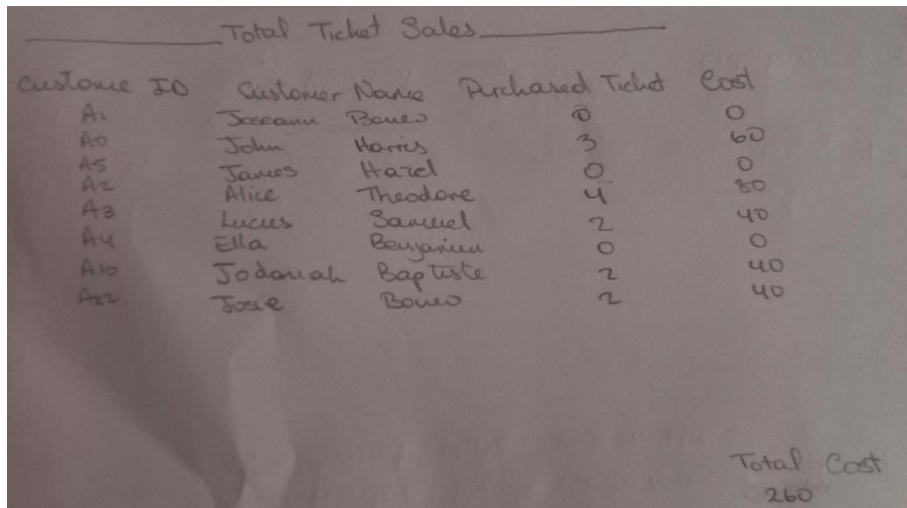 Total Ticket Sales
Custome ID Customer Name Purchased Ticket Cost
A1 Joseann Boneo 0 0
A0 John Harris 3 60
A5 James Hazel 0 0
A2 Alice Theodore 4 80
A3 Lucius Samuel 2 40
A4 Ella Benjamin 0 0
A10 Jodaniah Baptiste 2 40
A22 Josie Boneo 2 40
Total Cost
260